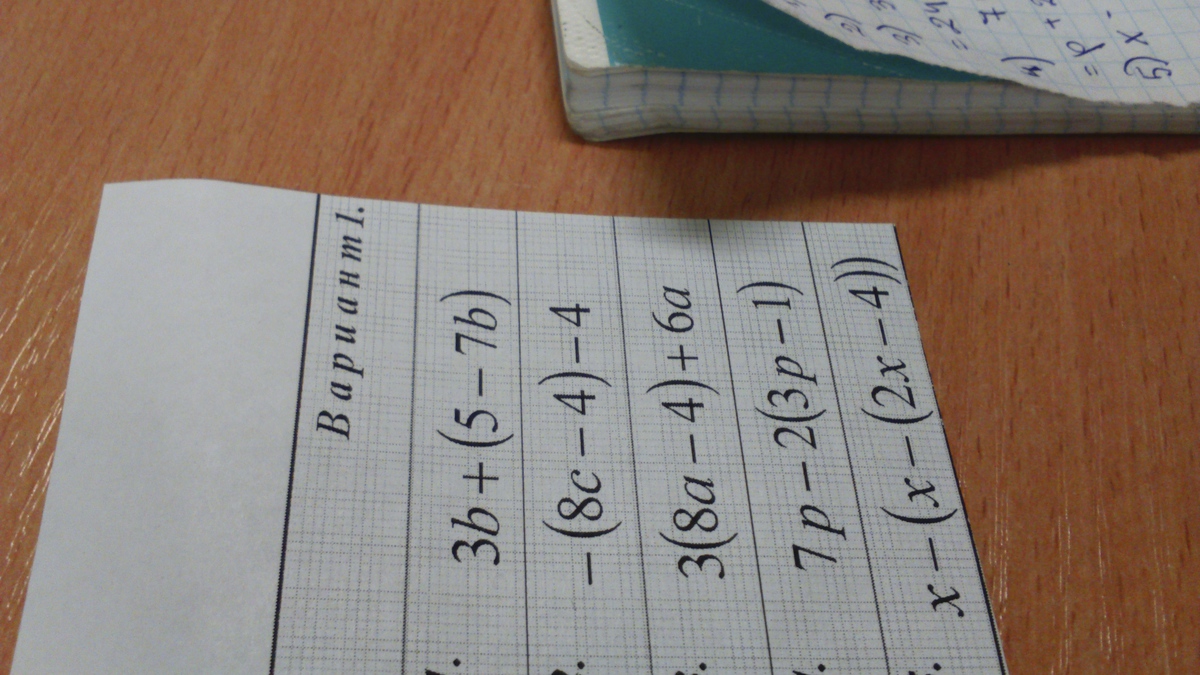 Вариант 1.
3b + (5 − 7b)
−(8c − 4) − 4
3(8a − 4) + 6a
7p − 2(3p − 1)
x − (x − (2x − 4))
2)
3) 3
= 24
4) 7
= p + 2
5) x -